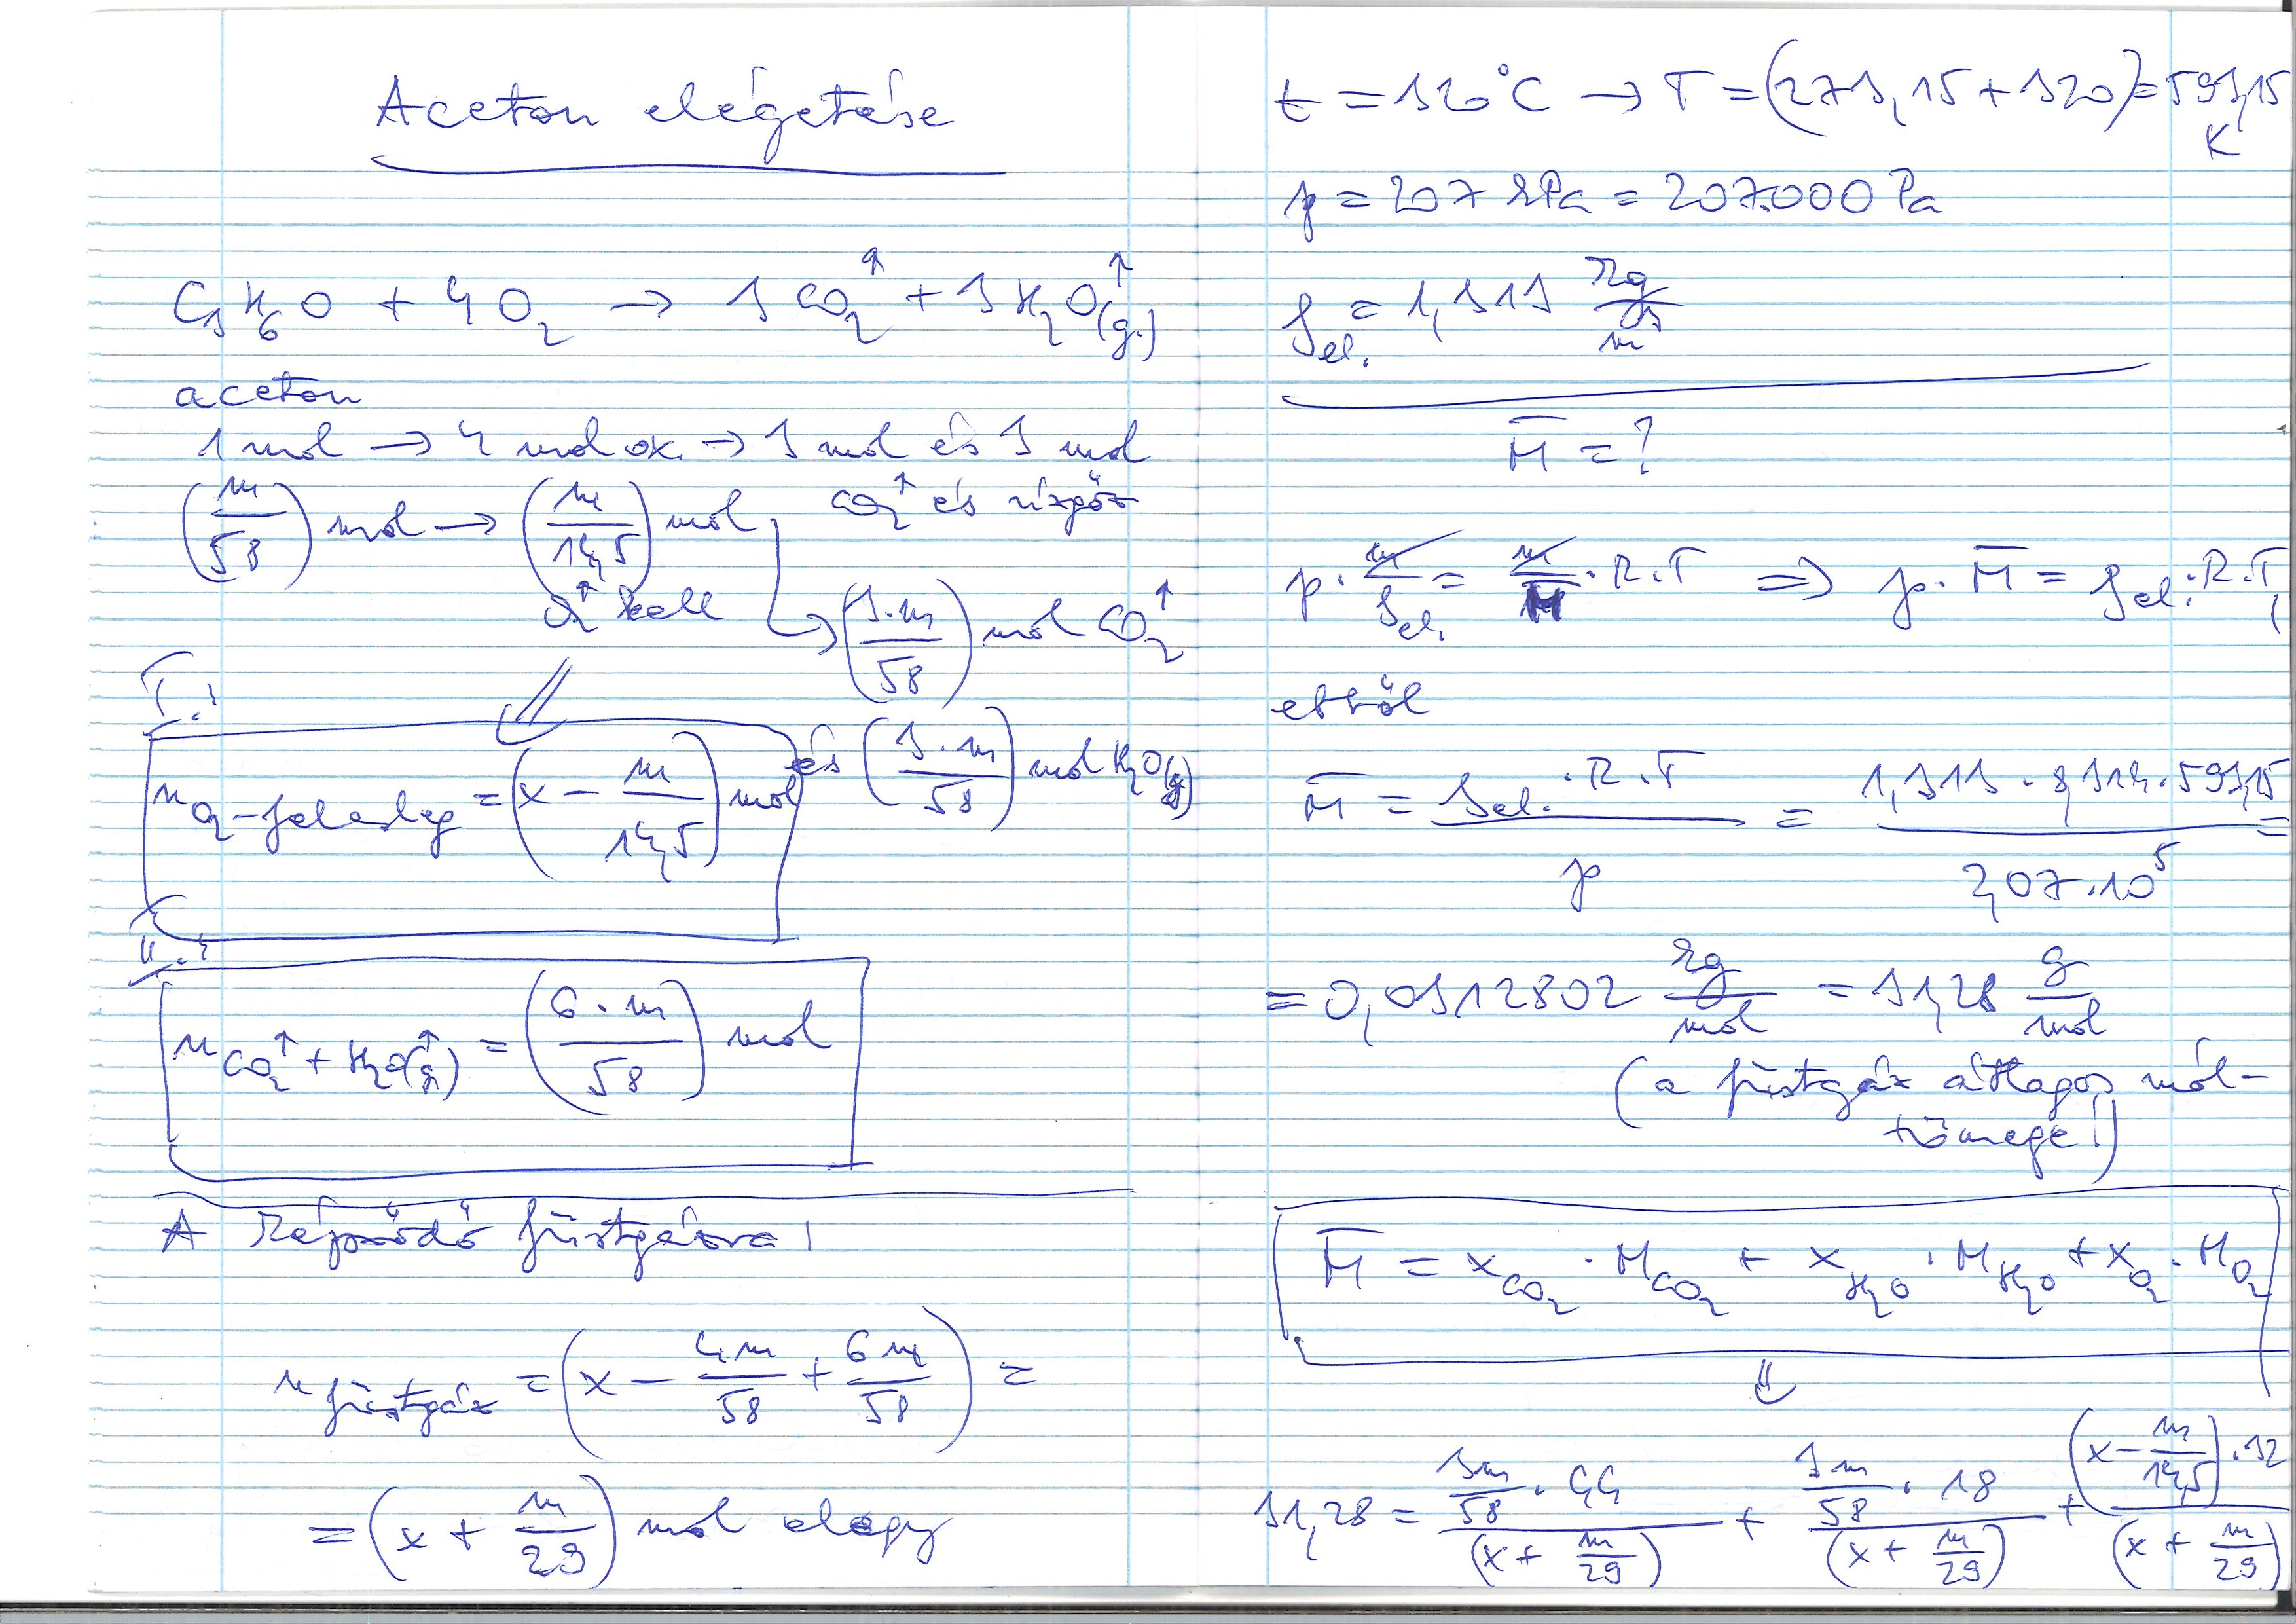 Aceton elégetése
C3H6O + 4O2 → 3CO2↑ + 3H2O(g.)↑
aceton
1 mol → 4 mol ox. → 3 mol és 3 mol
CO2↑ és vízgőz
(m/58) mol → (m/14,5) mol
O2↑ kell
→ (3·m/58) mol CO2↑
és (3·m/58) mol H2O(g)
I.:
nO2-felesleg = (x − m/14,5) mol
II.:
nCO2↑ + H2O(g)↑ = (6·m/58) mol
A képződő füstgázra:
nfüstgáz = (x − 4m/58 + 6m/58) =
= (x + m/29) mol elegy
t = 320°C → T = (273,15 + 320) = 593,15
K
p = 207 kPa = 207.000 Pa
ρel. = 1,313 kg/m³
M̅ = ?
p · m/ρel. = m/M̅ · R·T ⇒ p · M̅ = ρel. · R·T,
ebből
M̅ = ρel. · R·T / p = 1,313 · 8,314 · 593,15 / 2,07·10⁵ =
= 0,0312802 kg/mol = 31,28 g/mol
(a füstgáz átlagos mól-
tömege!)
M̅ = xCO2 · MCO2 + xH2O · MH2O + xO2 · MO2
⇓
31,28 = (3m/58 · 44)/(x + m/29) + (3m/58 · 18)/(x + m/29) + ((x − m/14,5) · 32)/(x + m/29)